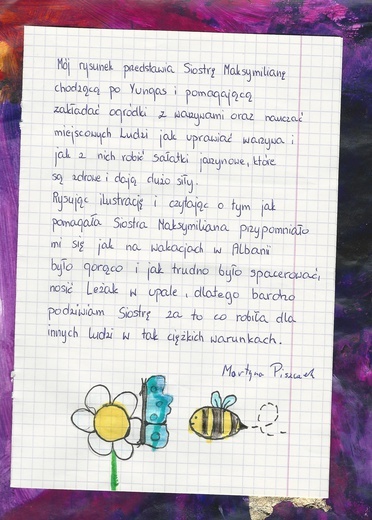 Mój rysunek przedstawia Siostrę Maksymilianę
chodzącą po Yungas i pomagającą
zakładać ogródki z warzywami oraz nauczać
miejscowych Ludzi jak uprawiać warzywa i
jak z nich robić sałatki jarzynowe, które
są zdrowe i dają dużo siły.
Rysując ilustrację i czytając o tym jak
pomagała Siostra Maksymiliana przypomniało
mi się jak na wakacjach w Albanii
było gorąco i jak trudno było spacerować,
nosić Leżak w upale, dlatego bardzo
podziwiam Siostrę za to co robiła dla
innych ludzi w tak ciężkich warunkach.
Martyna